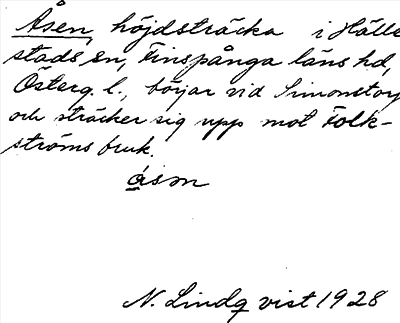 Åsen, höjdsträcka i Hälle-
stads sn, Finspånga läns hd,
Österg. l., börjar vid Simonstorp
och sträcker sig upp mot Folk-
ströms bruk.
åsm
N. Lindqvist 1928